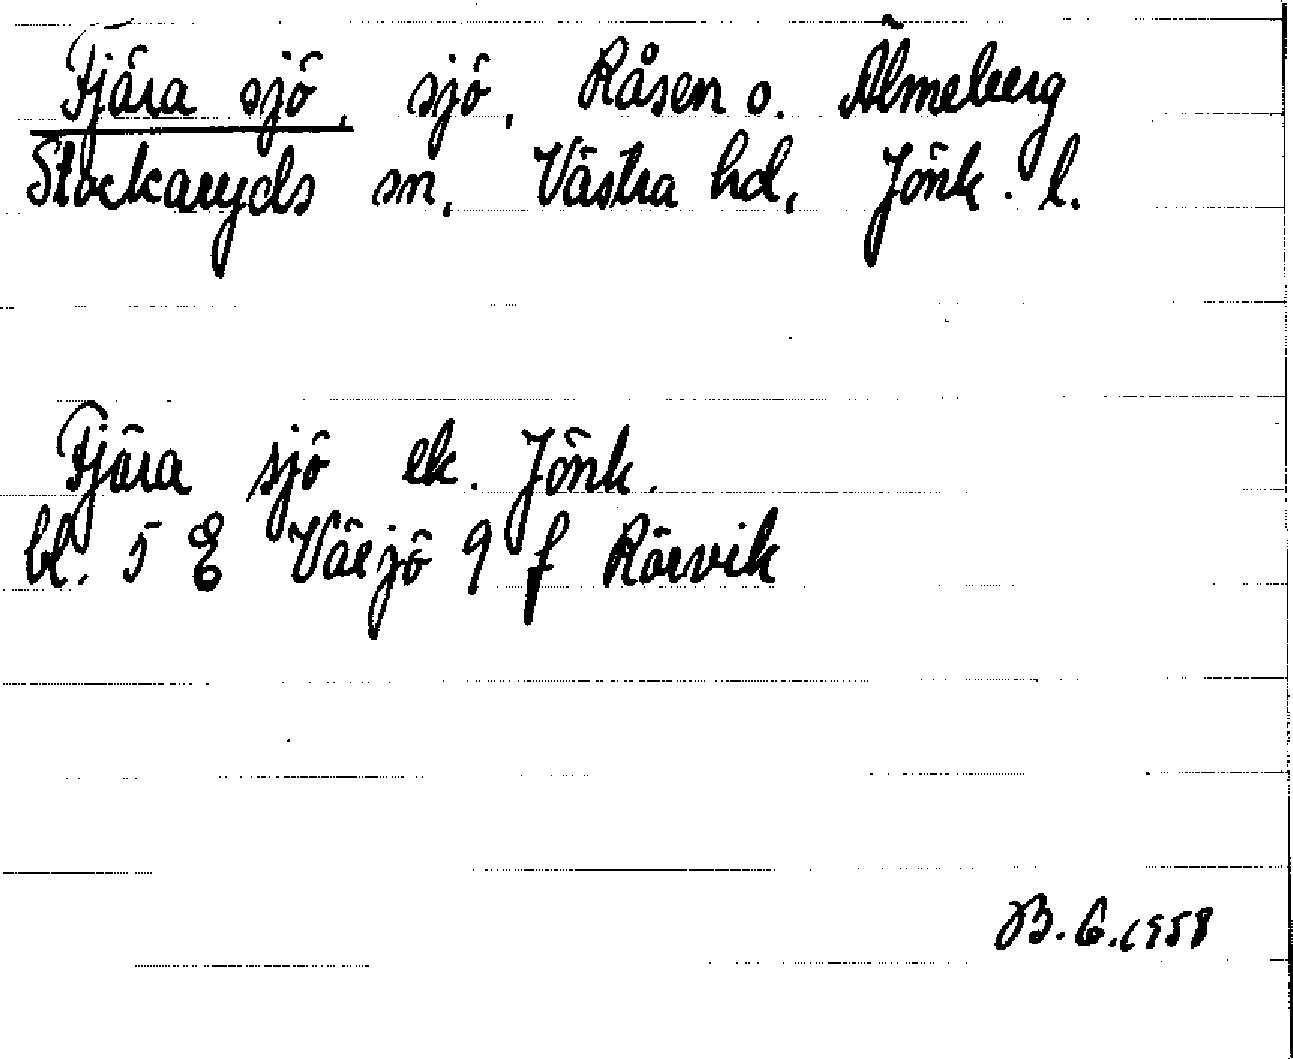 Fjära sjö, sjö, Råsen o. Älmeberg
Stockaryds sn, Västra hd, Jönk. l.
Fjära sjö ek. Jönk.
bl. 5 E Växjö 9 f Rörvik
B. G. 1958